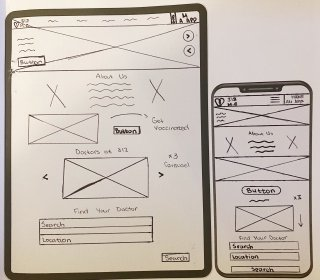 Button
About Us
Button
Get
Vaccinated!
Doctors of 312
x3
Carousel
Find Your Doctor
Search
Location
Search
312
About Us
Button
x3
Find Your Doctor
Search
Location
Search